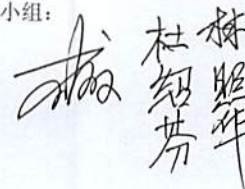 小组：
杜绍芬
林照华